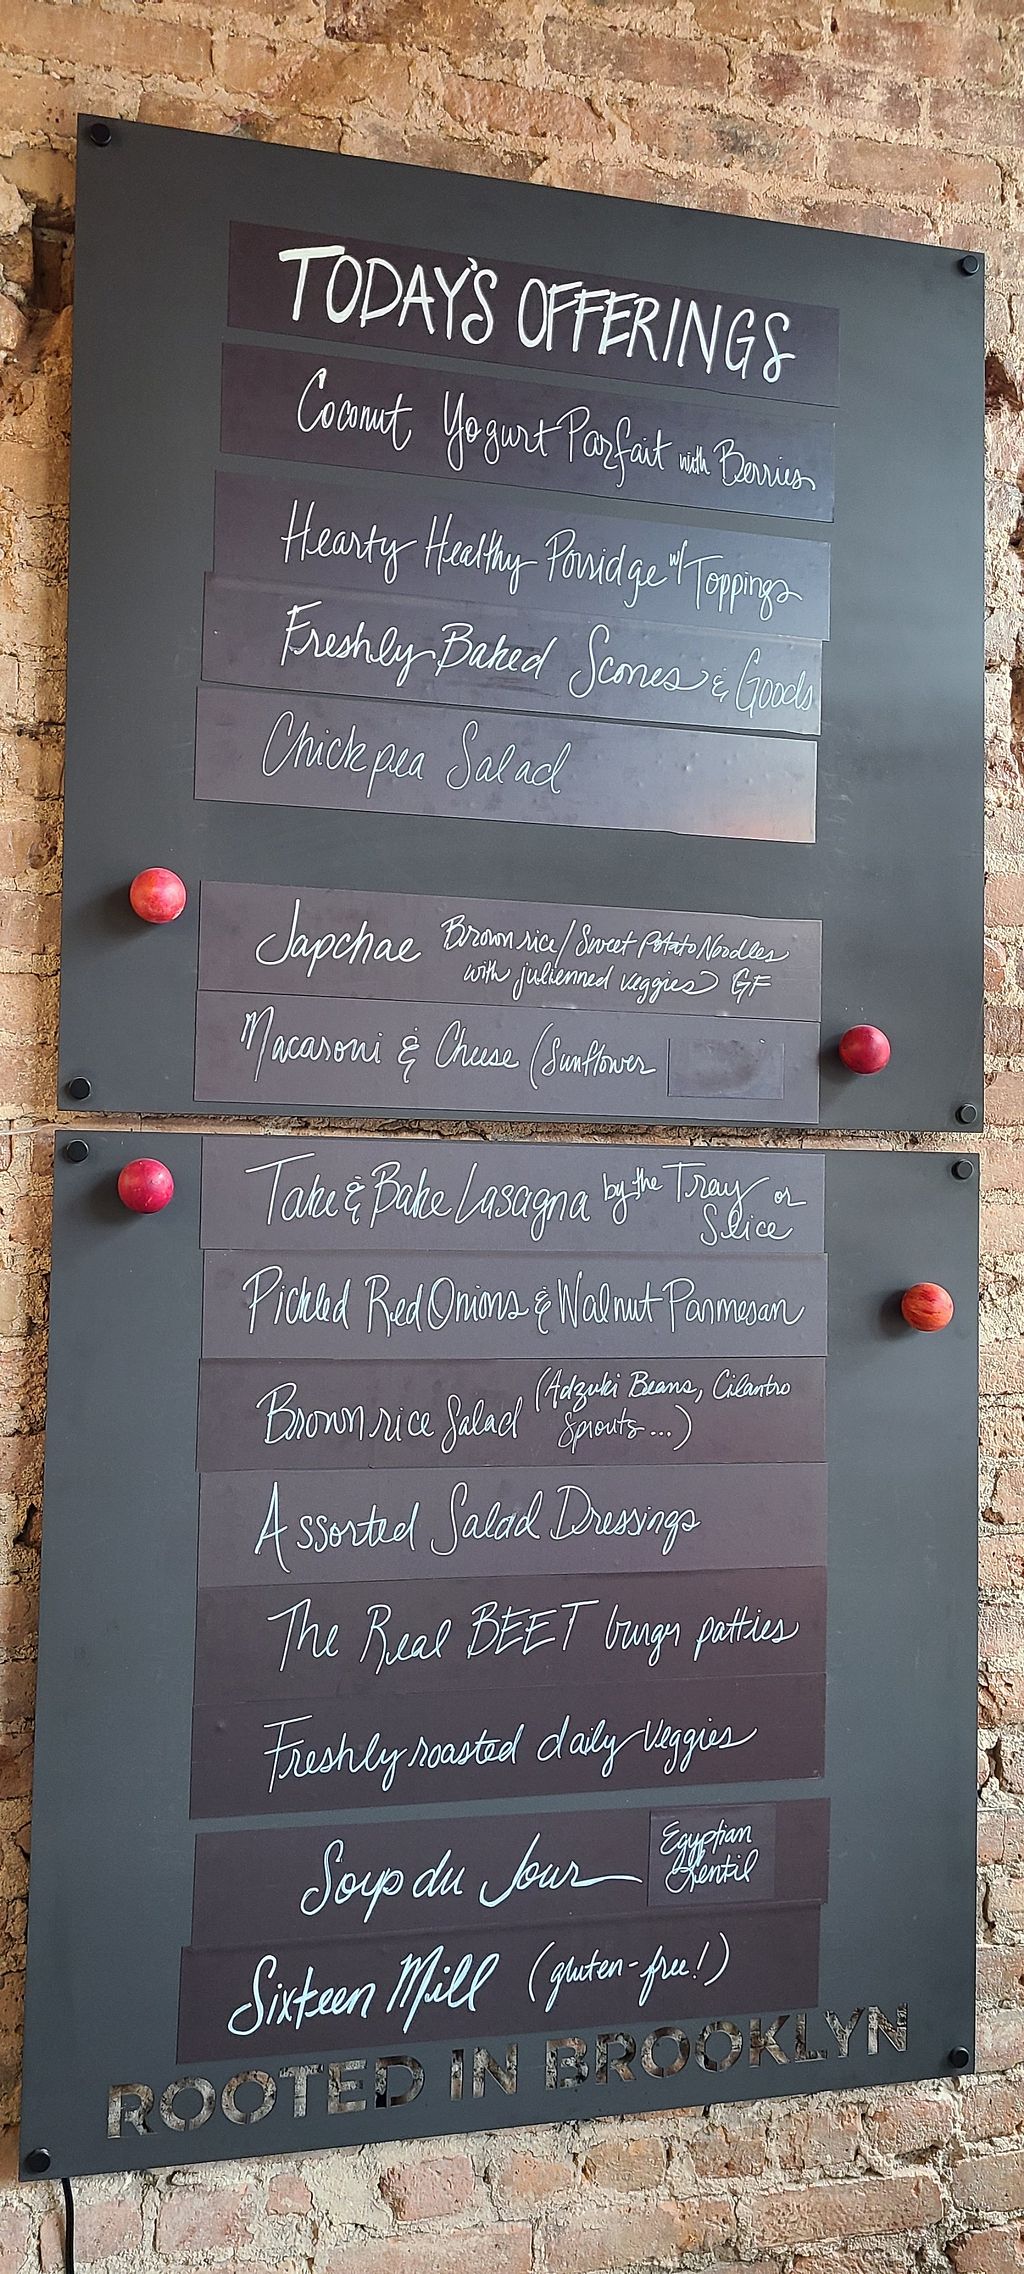 TODAY'S OFFERINGS
Coconut Yogurt Parfait with Berries
Hearty Healthy Porridge w/ Toppings
Freshly Baked Scones & Goods
Chickpea Salad
Japchae Brown rice/Sweet Potato Noodles
with julienned veggies GF
Macaroni & Cheese (Sunflower
Take & Bake Lasagna by the Tray or
Slice
Pickled Red Onions & Walnut Parmesan
Brown rice Salad (Adzuki Beans, Cilantro
Sprouts...)
Assorted Salad Dressings
The Real BEET burger patties
Freshly roasted daily veggies
Soup du Jour Egyptian
Lentil
Sixteen Mill (gluten-free!)
ROOTED IN BROOKLYN